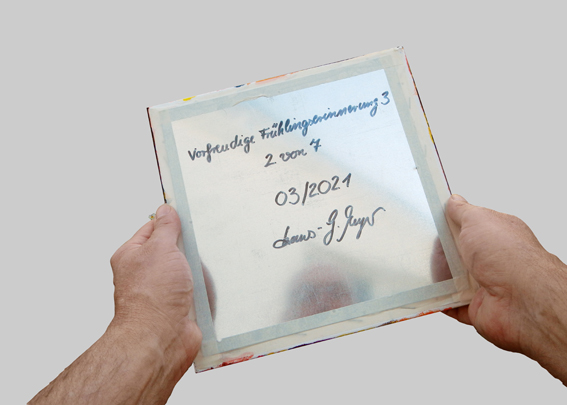 Vorfreudige Frühlingserinnerung 3
2 von 7
03/2021